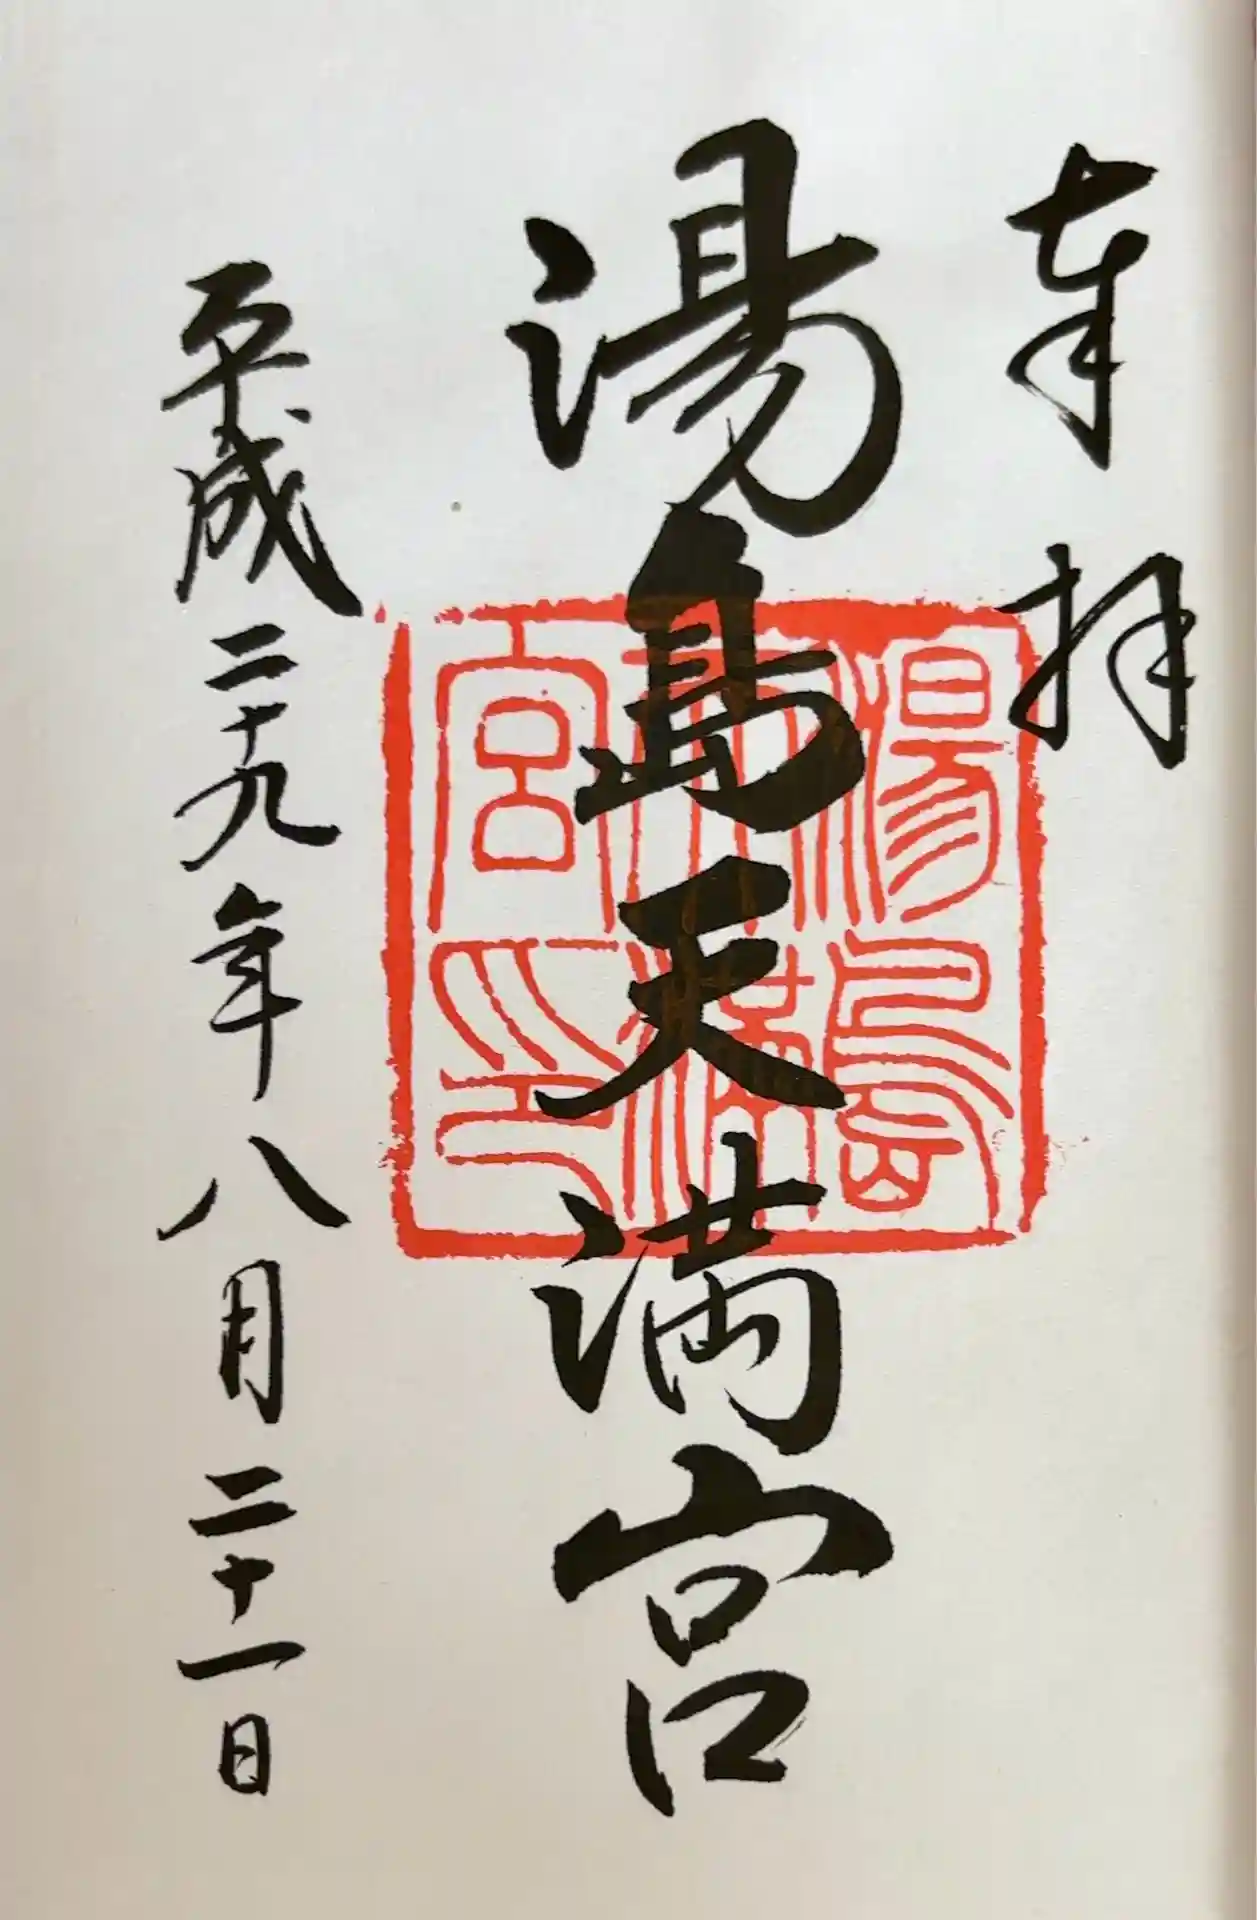 奉拝
湯島天満宮
湯島天満宮印
平成二十九年八月二十一日